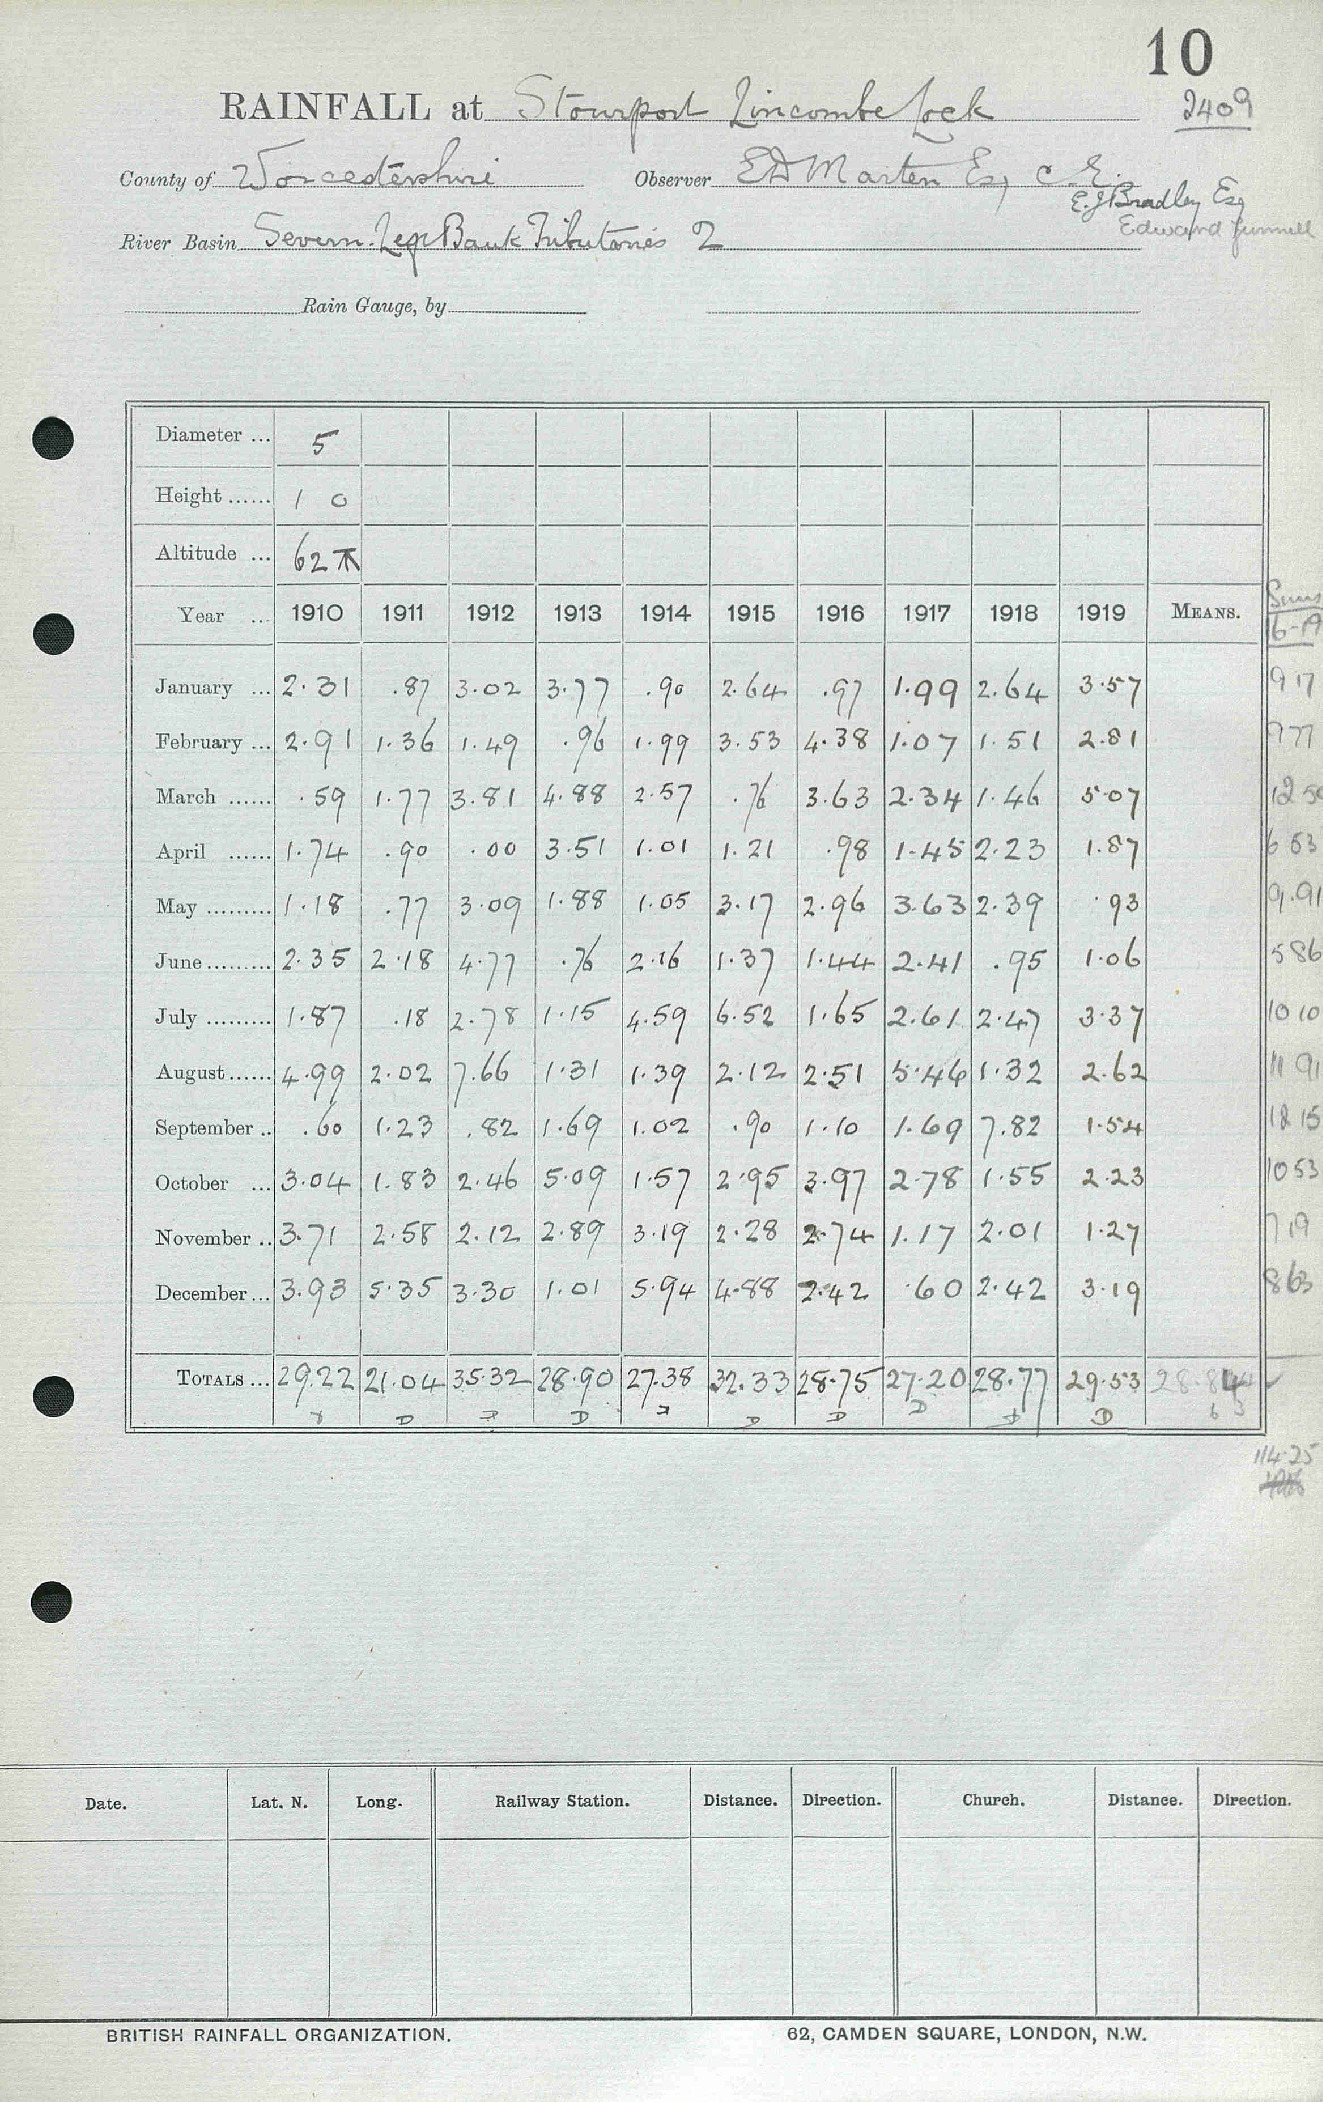 10
RAINFALL at Stourport Lincombe Lock 2409
County of Worcestershire Observer E D Marten Esq C.E.
E.J Bradley Esq
River Basin Severn. Left Bank Tributaries 2 Edward
Rain Gauge, by
Diameter ... 5
Height ...... 1 0
Altitude ... 62
Year ... 1910 1911 1912 1913 1914 1915 1916 1917 1918 1919 MEANS. Sums 16-19
January ... 2.31 .87 3.02 3.77 .90 2.64 .97 1.99 2.64 3.57 9 17
February ... 2.91 1.36 1.49 .96 1.99 3.53 4.38 1.07 1.51 2.81 9 77
March ...... .59 1.77 3.81 4.88 2.57 .76 3.63 2.34 1.46 5.07 12 50
April ...... 1.74 .90 .00 3.51 1.01 1.21 .98 1.45 2.23 1.87 6 53
May ......... 1.18 .77 3.09 1.88 1.05 3.17 2.96 3.63 2.39 .93 9.91
June ......... 2.35 2.18 4.77 .76 2.16 1.37 1.44 2.41 .95 1.06 5 86
July ......... 1.87 .18 2.78 1.15 4.59 6.52 1.65 2.61 2.47 3.37 10 10
August ...... 4.99 2.02 7.66 1.31 1.39 2.12 2.51 5.46 1.32 2.62 11 91
September .. .60 1.23 .82 1.69 1.02 .90 1.10 1.69 7.82 1.54 12 15
October ... 3.04 1.83 2.46 5.09 1.57 2.95 3.97 2.78 1.55 2.23 10 53
November .. 3.71 2.58 2.12 2.89 3.19 2.28 2.74 1.17 2.01 1.27 7 19
December ... 3.93 5.35 3.30 1.01 5.94 4.88 2.42 .60 2.42 3.19 8 63
TOTALS ... 29.22 21.04 35.32 28.90 27.38 32.33 28.75 27.20 28.77 29.53 28.84
D D D D D D
114.25
Date. Lat. N. Long. Railway Station. Distance. Direction. Church. Distance. Direction.
BRITISH RAINFALL ORGANIZATION. 62, CAMDEN SQUARE, LONDON, N.W.